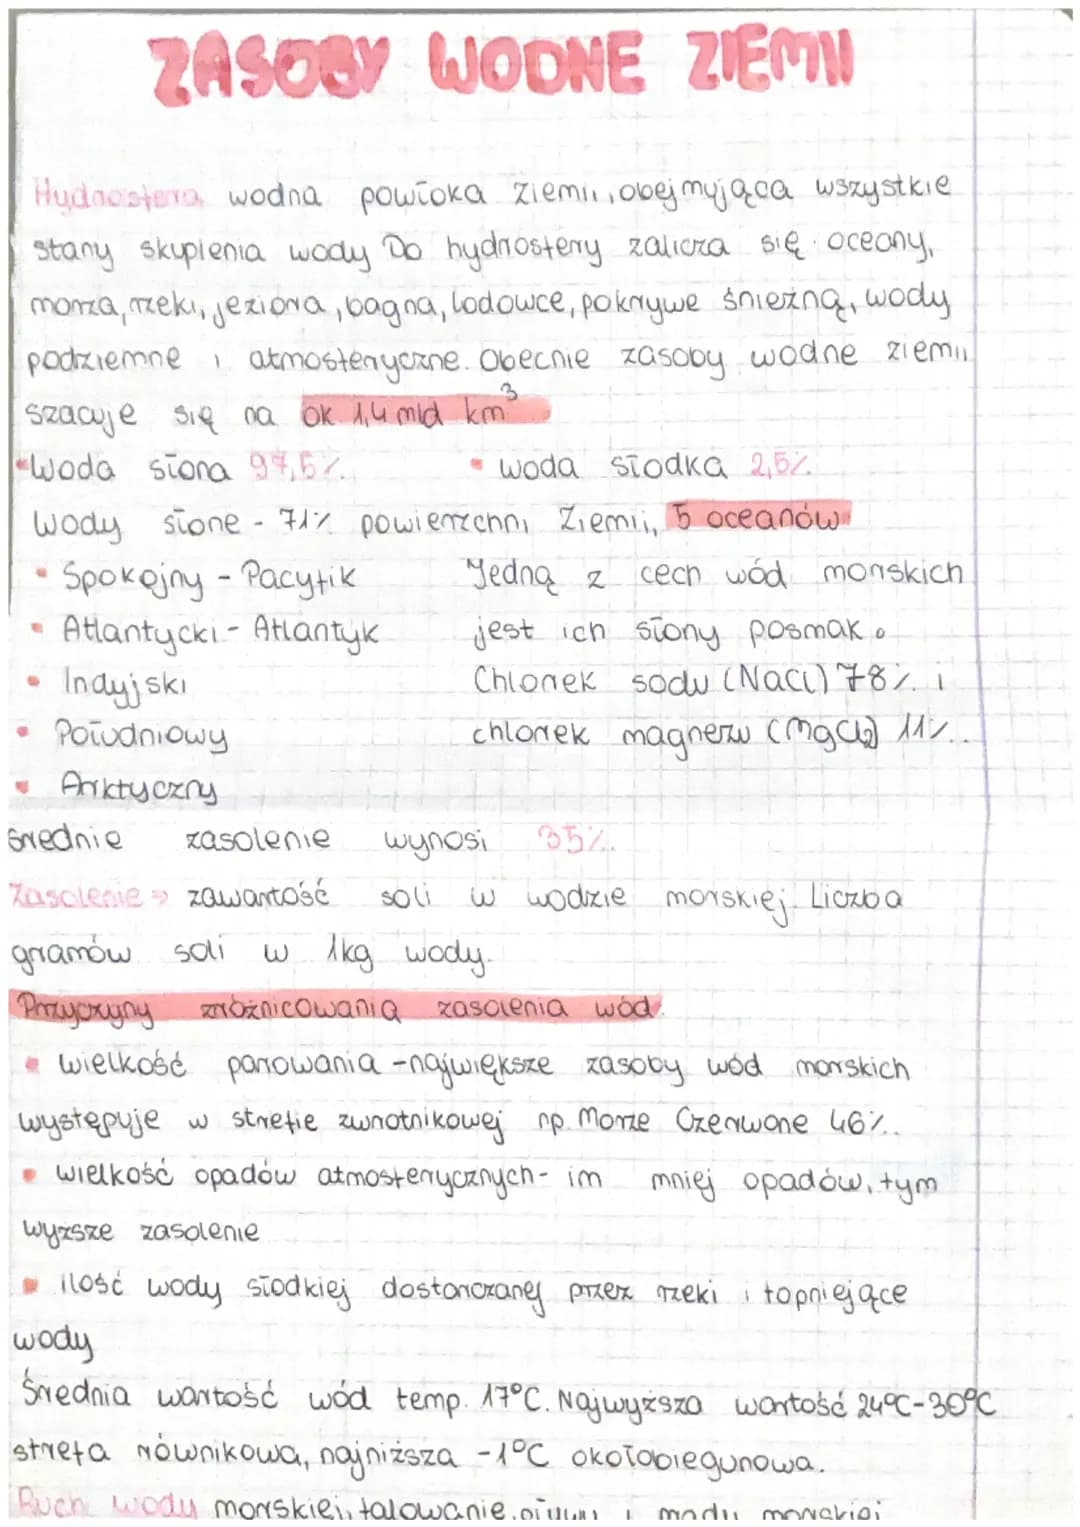 ZASOBY WODNE ZIEMII
Hydrosfera, wodna powłoka ziemii, obejmująca wszystkie
stany skupienia wody Do hydrosfery zalicza się oceany,
morza, rzeki, jeziora, bagna, lodowce, pokrywe śnieżną, wody
podziemne i atmosferyczne. Obecnie zasoby wodne ziemii
szacuje się na ok 1,4 mld km³
• Woda słona 97,5%. • woda słodka 2,5%.
Wody słone - 71% powierzchni Ziemii, 5 oceanów
• Spokojny - Pacyfik Jedną z cech wód morskich
• Atlantycki - Atlantyk jest ich słony posmak.
• Indyjski Chlorek sodu (NaCl) 78% i
• Południowy chlorek magnezu (MgCl₂) 11%..
• Arktyczny
Średnie zasolenie wynosi 35%.
Zasolenie => zawartość soli w wodzie morskiej. Liczba
gramów soli w 1kg wody.
Przyczyny zróżnicowania zasolenia wód.
• wielkość parowania - największe zasoby wód morskich
występuje w strefie zwrotnikowej np. Morze Czerwone 46%..
• wielkość opadów atmosferycznych - im mniej opadów, tym
wyższe zasolenie
• ilość wody słodkiej dostarczanej przez rzeki i topniejące
wody
Średnia wartość wód temp. 17°C. Najwyższa wartość 24°C-30°C
strefa równikowa, najniższa -1°C okołobiegunowa.
Ruch wody morskiej, falowanie, pływy i prądy morskiej